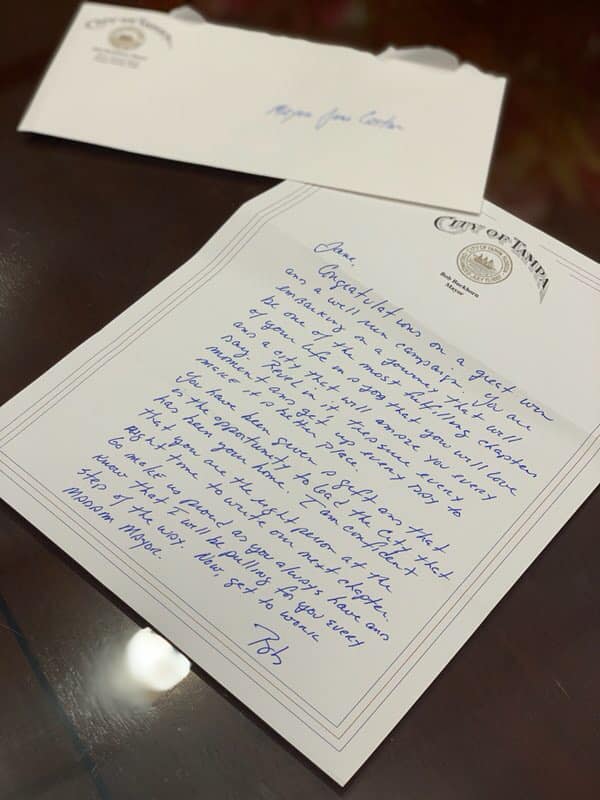 CITY OF TAMPA
Mayor Jane Castor
CITY OF TAMPA
Bob Buckhorn
Mayor
Jane,
Congratulations on a great win
and a well run campaign. You are
embarking on a journey that will
be one of the most fulfilling chapters
of your life in a job that you will love
and a city that will amaze you every
day. Revel in it, treasure every
moment and get up every day to
make it a better place.
You have been given a gift and that
is the opportunity to lead the city that
has been your home. I am confident
that you are the right person at the
right time to write our next chapter.
Go make us proud as you always have and
know that I will be pulling for you every
step of the way. Now, get to work
MADAM MAYOR.
Bob